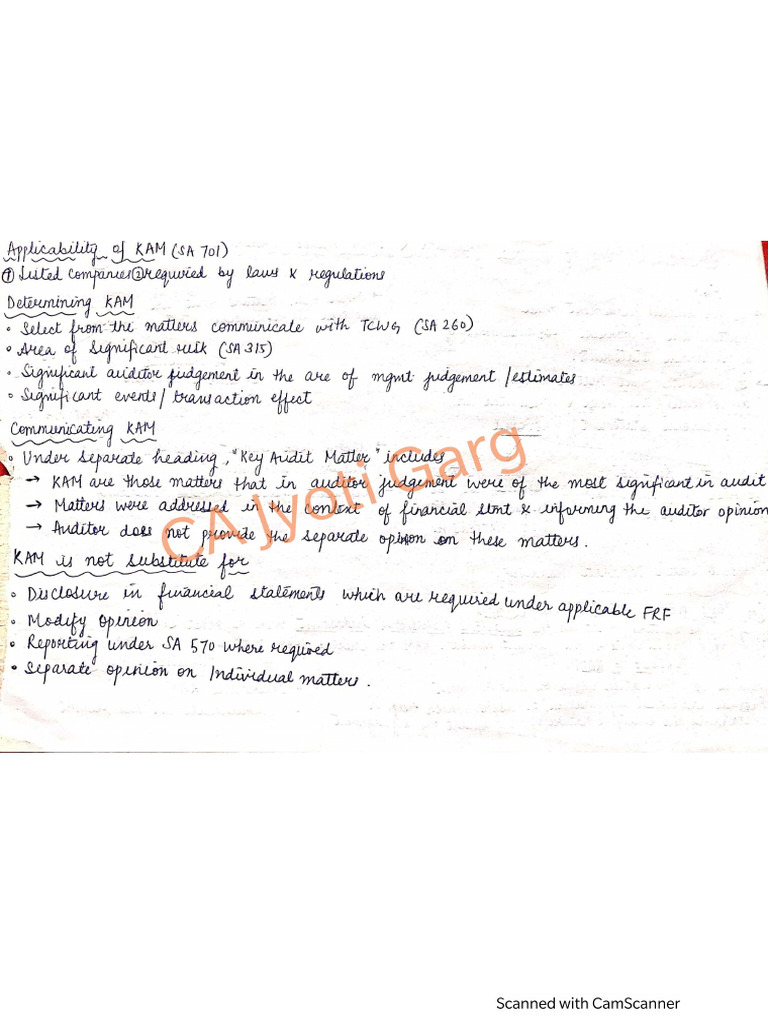 Applicability of KAM (SA 701)
① Listed Companies ② required by laws & regulations
Determining KAM
• Select from the matters communicate with TCWG (SA 260)
• Area of Significant risk (SA 315)
• Significant auditor judgement in the are of mgmt judgement / estimates
• Significant events / transaction effect
Communicating KAM
• Under separate heading, "Key Audit Matter" includes
→ KAM are those matters that in auditor judgement were of the most significant in audit
→ Matters were addressed in the context of financial stmt & informing the auditor opinion
→ Auditor does not provide the separate opinion on these matters.
KAM is not substitute for
• Disclosure in financial statements which are required under applicable FRF
• Modify Opinion
• Reporting under SA 570 where required
• Separate opinion on Individual matters.
CA Jyoti Garg
Scanned with CamScanner